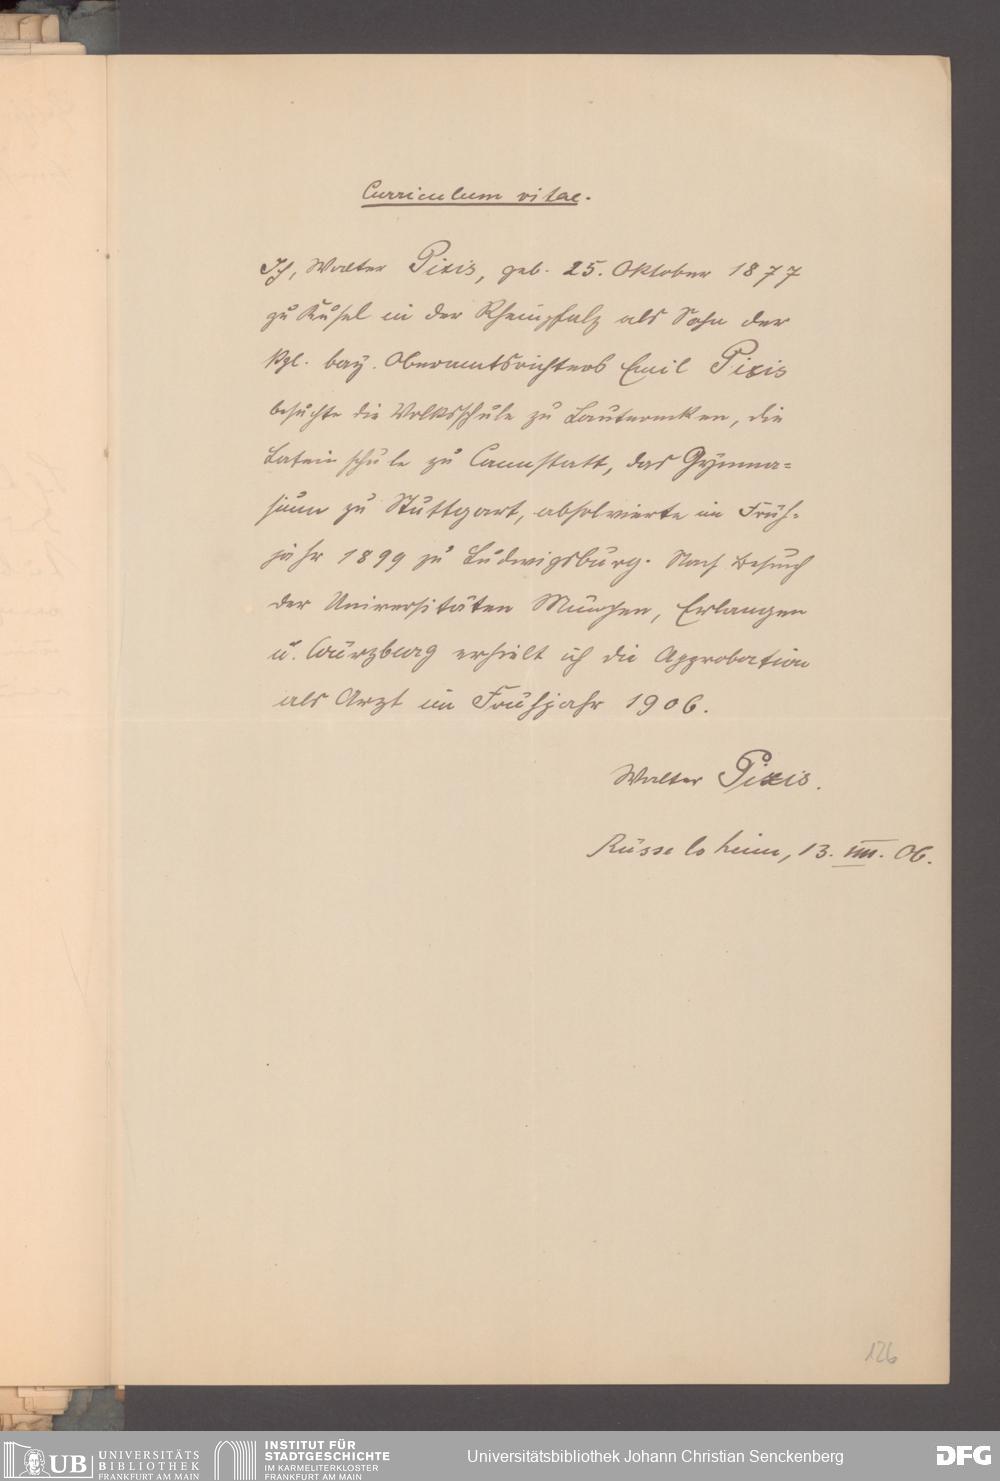 Curriculum vitae.
Ich, Walter Pixis, geb. 25. Oktober 1877
zu Kusel in der Rheinpfalz als Sohn der
kgl. bay. Oberamtsrichters Emil Pixis
besuchte die Volksschule zu Lauterecken, die
Lateinschule zu Cannstatt, das Gymna=
sium zu Stuttgart, absolvierte im Früh=
jahr 1899 zu Ludwigsburg. Nach Besuch
der Universitäten München, Erlangen
u. Würzburg erhielt ich die Approbation
als Arzt im Frühjahr 1906.
Walter Pixis.
Rüsselsheim, 13. VIII. 06.
126
UB UNIVERSITÄTS
BIBLIOTHEK
FRANKFURT AM MAIN
INSTITUT FÜR
STADTGESCHICHTE
IM KARMELITERKLOSTER
FRANKFURT AM MAIN
Universitätsbibliothek Johann Christian Senckenberg
DFG